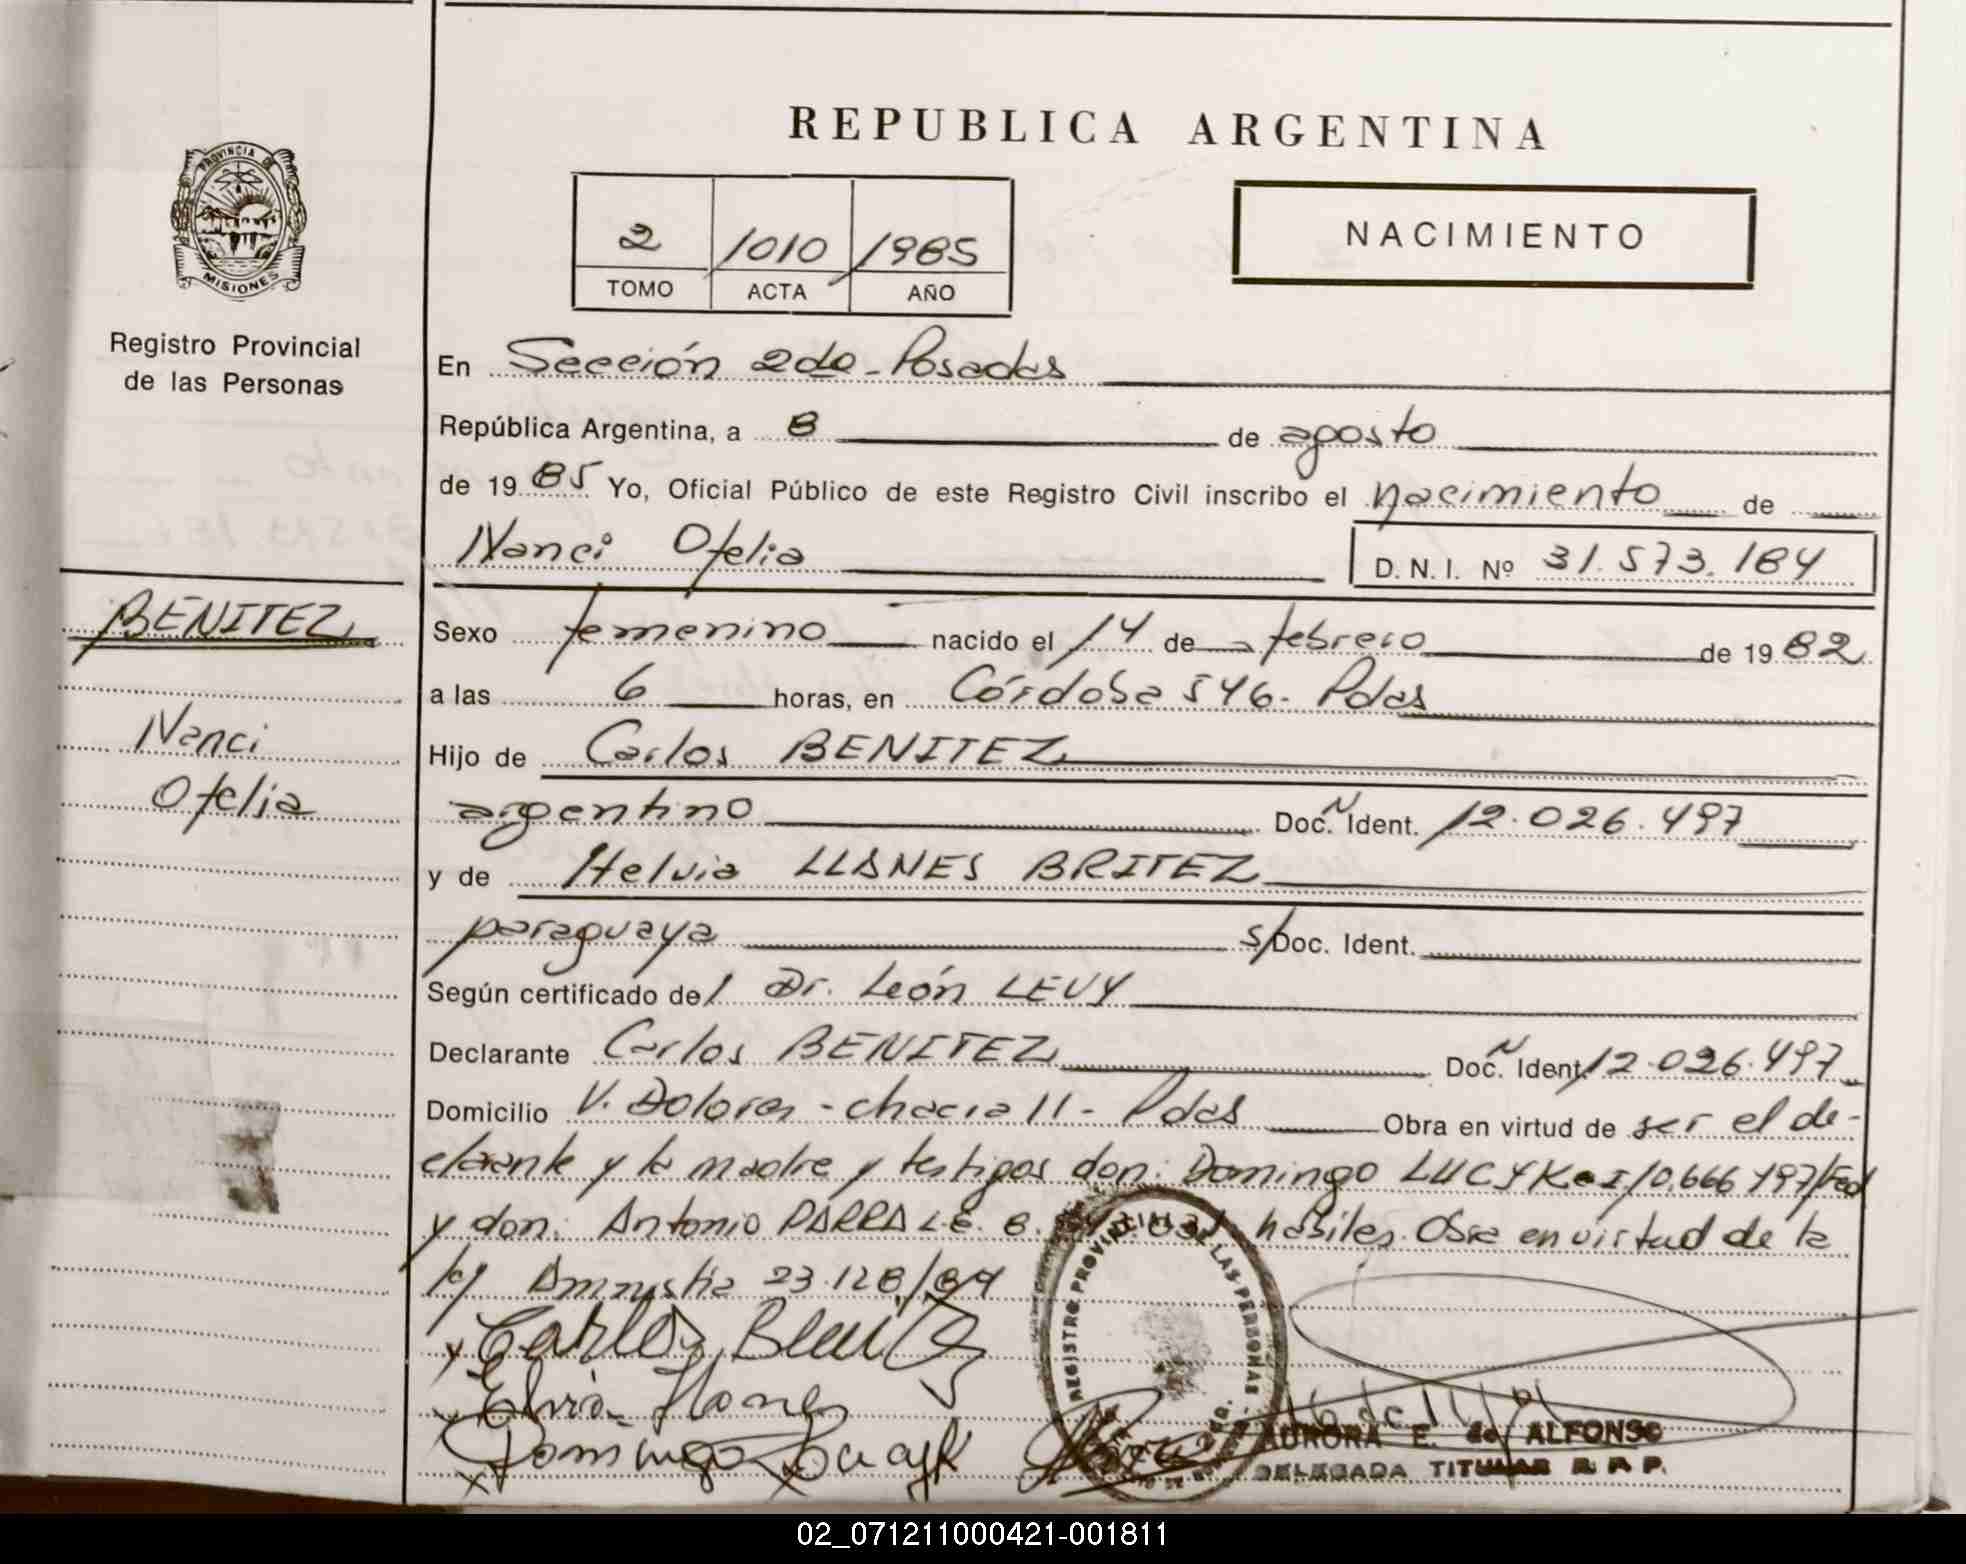 REPUBLICA ARGENTINA
PROVINCIA DE
MISIONES
2 1010 1985
TOMO ACTA AÑO
NACIMIENTO
Registro Provincial
de las Personas
En Sección 2da - Posadas
República Argentina, a 8 de agosto
de 19 85 Yo, Oficial Público de este Registro Civil inscribo el nacimiento de
Nanci Ofelia D. N. I. Nº 31.573.184
BENITEZ
Nanci
Ofelia
Sexo femenino nacido el 14 de febrero de 19 82
a las 6 horas, en Córdoba 546 - Pdas
Hijo de Carlos BENITEZ
argentino Doc. N Ident. 12.026.497
y de Helvia LLANES BRITEZ
paraguaya s/Doc. Ident.
Según certificado del Dr. León LEVY
Declarante Carlos BENITEZ Doc. N Ident. 12.026.497
Domicilio V. Dolores - chacra 11 - Pdas Obra en virtud de ser el de-
clarante y la madre y testigos don: Domingo
y don: Antonio PARRA L.E. 8. hábiles. Obra en virtud de la
ley Amnistia 23.128/84
Carlos Benitez
Elvia Llanes
Domingo
REGISTRO PROVINCIAL DE LAS PERSONAS
AURORA E. de ALFONSO
DELEGADA TITULAR R. P. P.
02_071211000421-001811